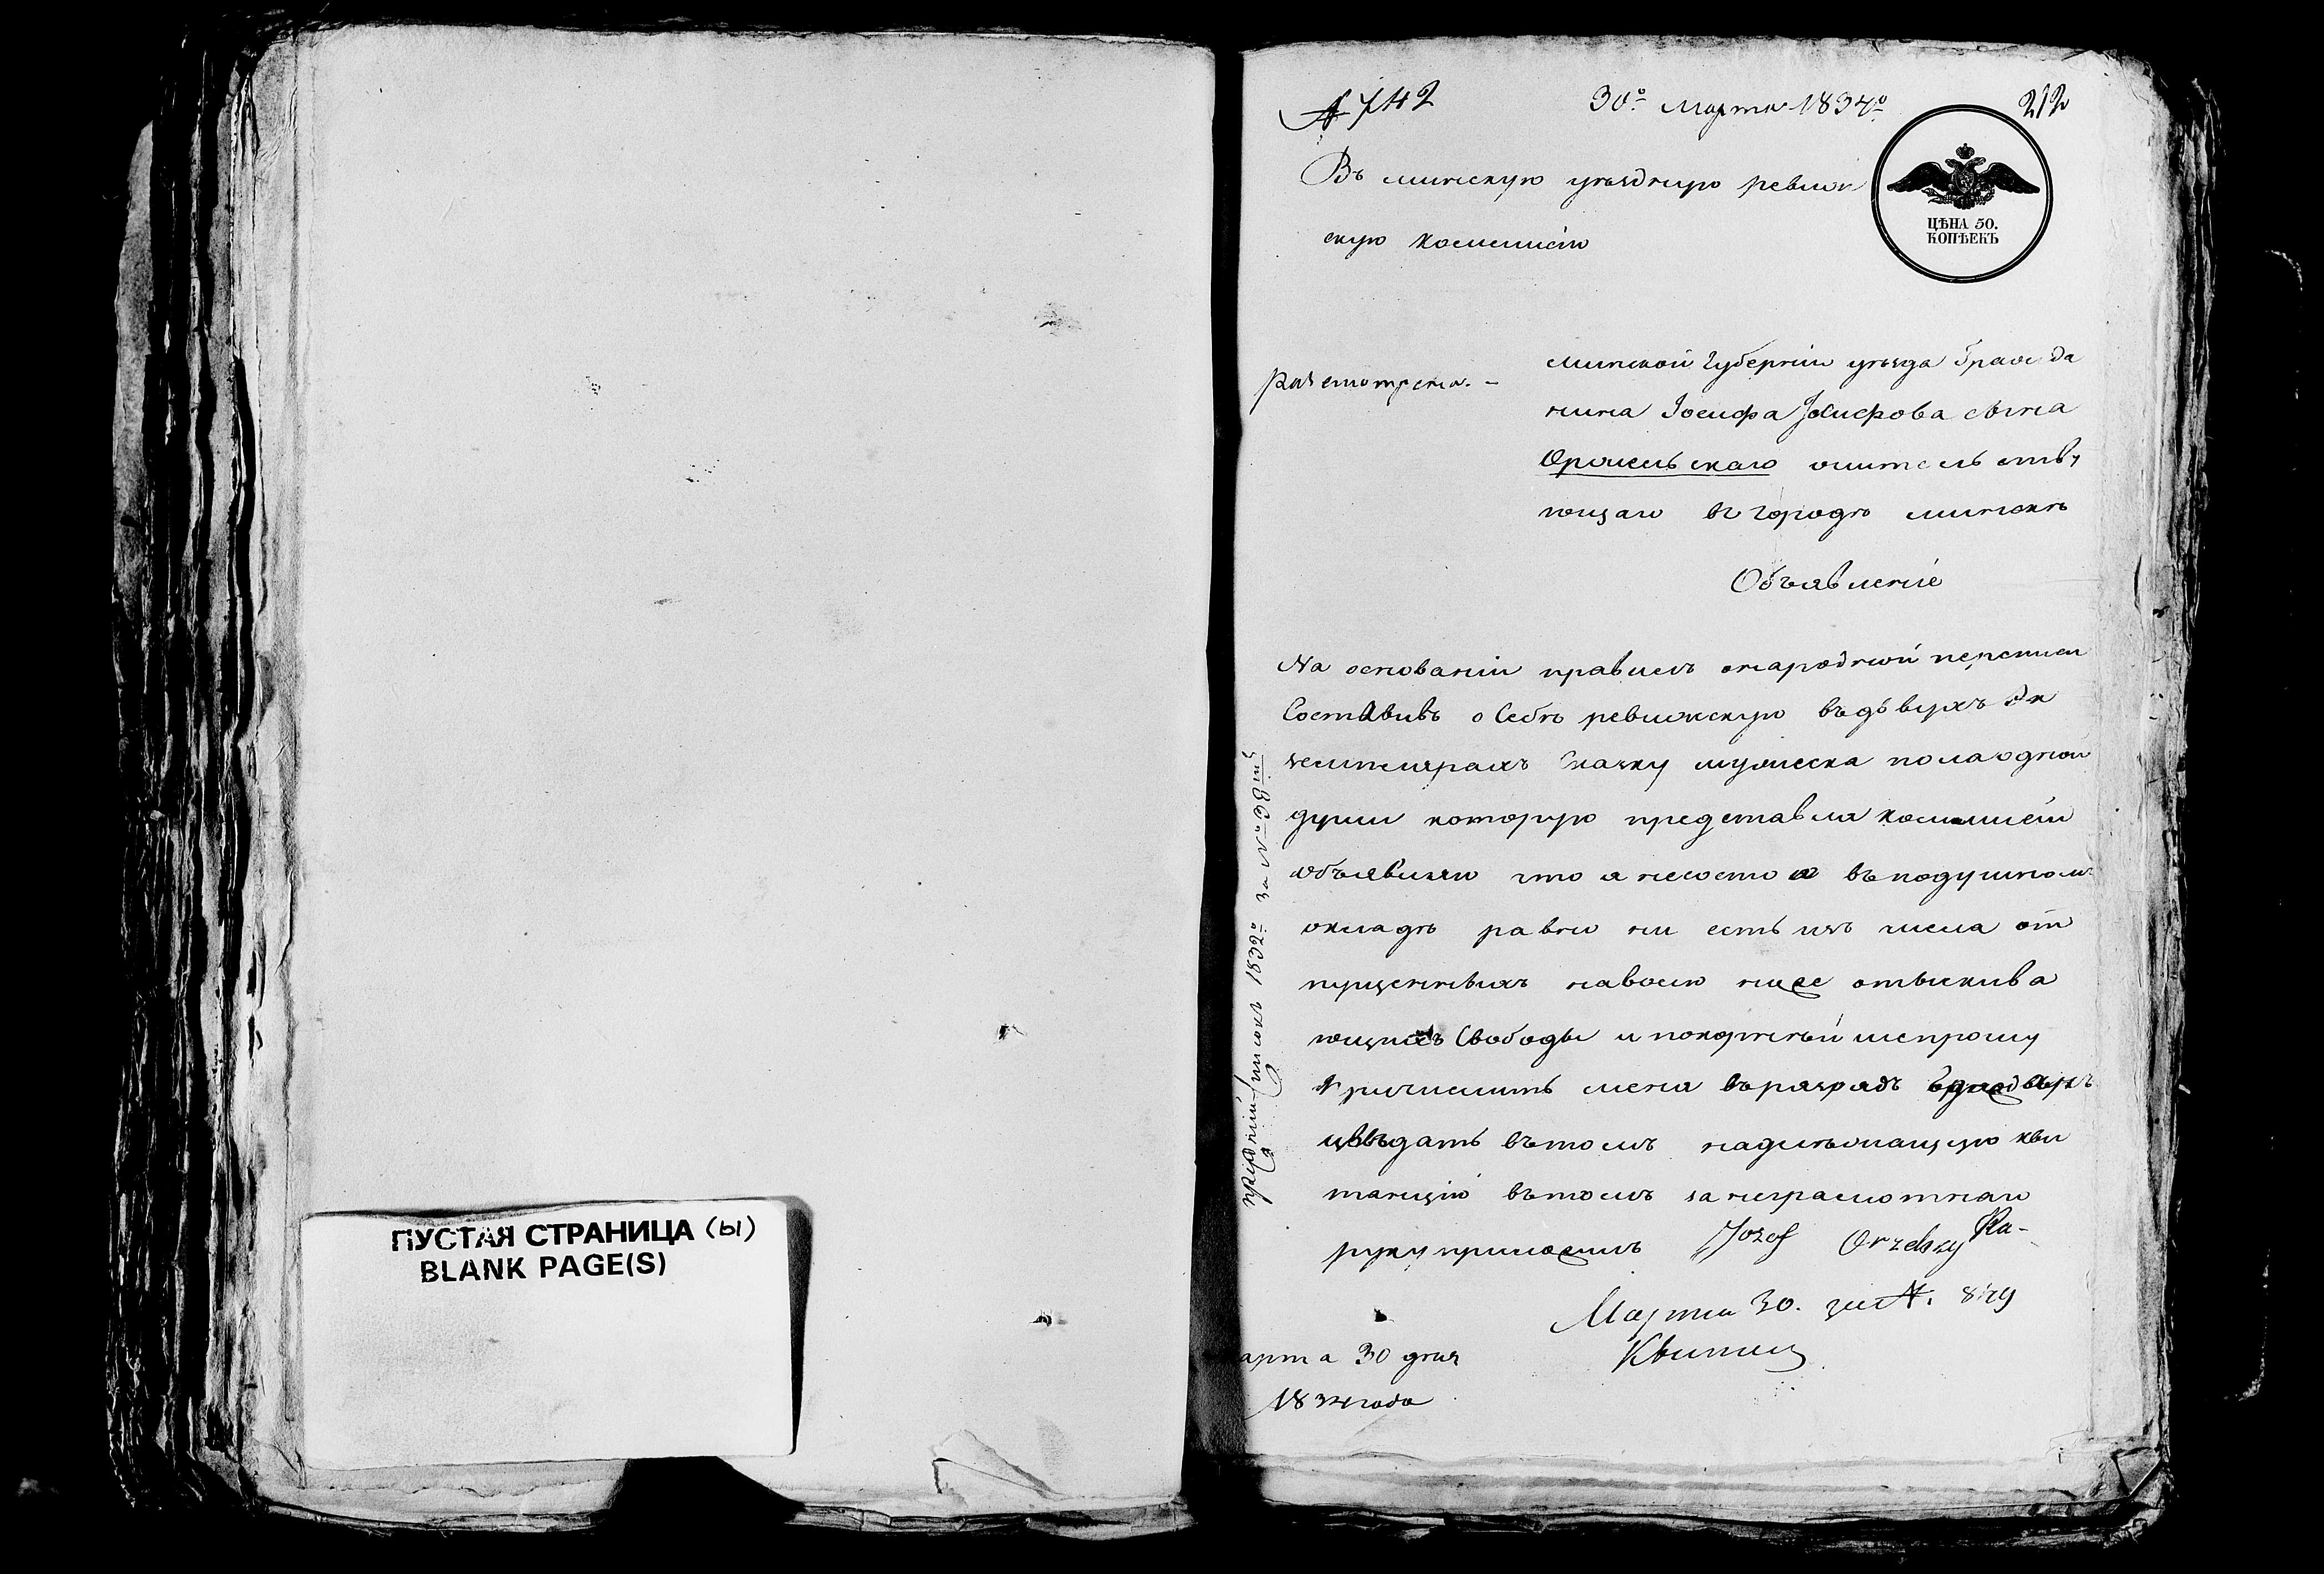 ПУСТАЯ СТРАНИЦА (ы)
BLANK PAGE(S)
№ 742
30º Марта 1834º
212
Въ минскую уѣздную ревиж
скую комисію
ЦѢНА 50.
КОПѢЕКЪ
Разсмотрена. –
минской Губерніи уѣзда Гражда
нина Іосифа Іосифова сына
Оржельскаго жительству
ющаго въ городѣ минскѣ
Объявленіе
На основаніи правилъ онародной переписи
Составивъ о Себѣ ревижскую въ двухъ Эк
земплярахъ Скаску мужеска пола одной
души которую представля комисіи
объявляю что я несостоя въ подушномъ
окладѣ равно ни есть изъ числа от
пущенныхъ наволю ниже отыскива
ющихъ Свободы и покорнейше прошу
Причислить меня въ разрядъ
въ томъ надлежащую кви
танцію въ томъ за неграмотнаго
руку приложилъ Jozef
Марта 30. 849
арта 30 дня
1834 года
1832º за №